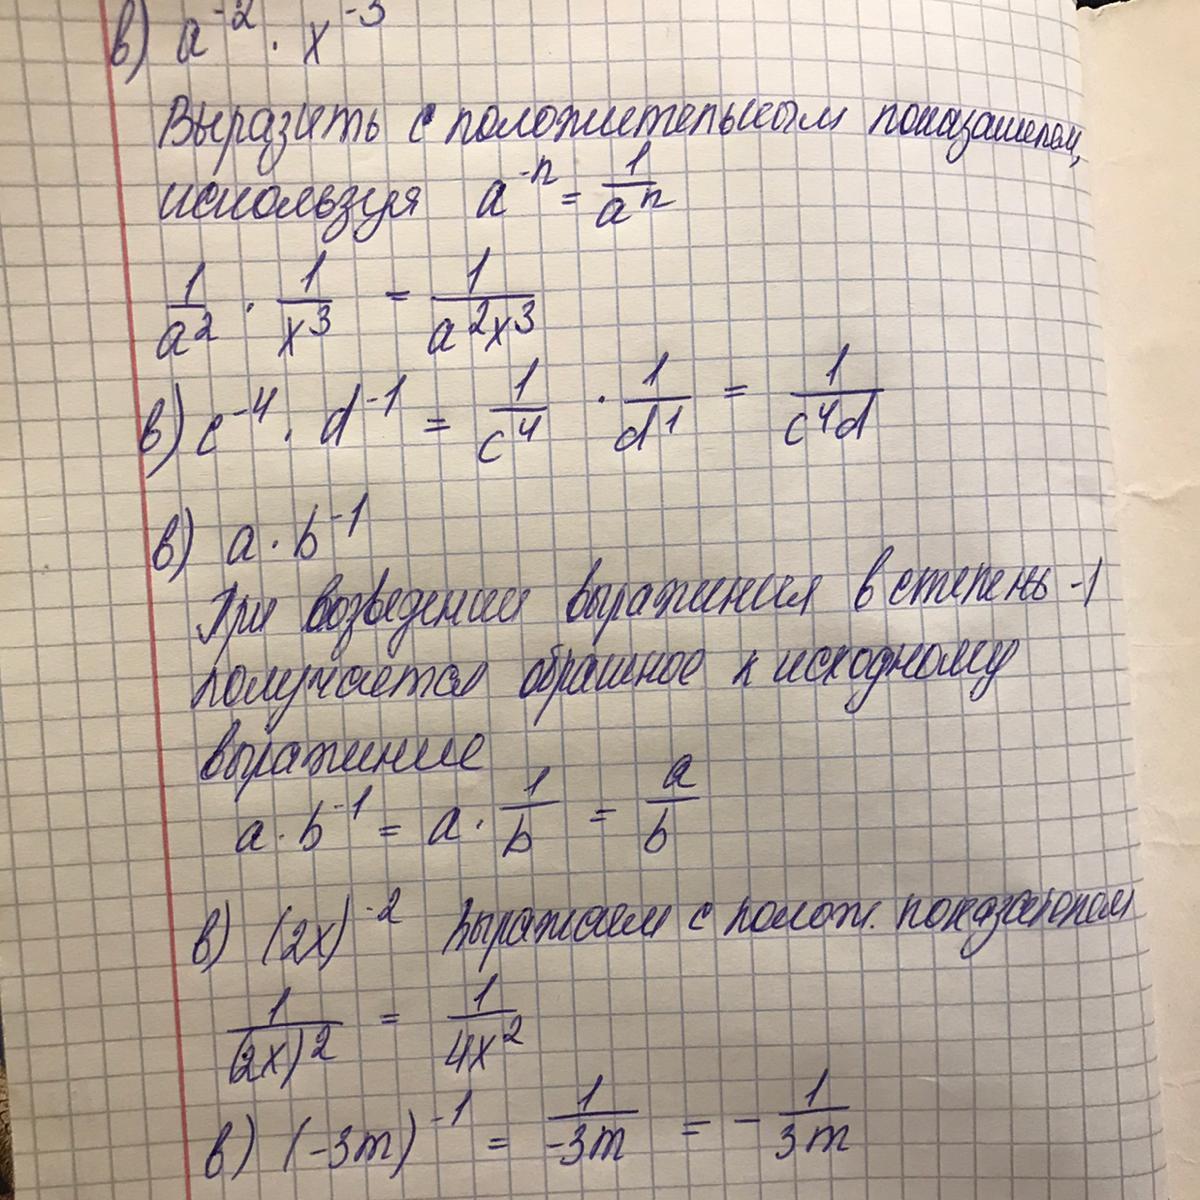 в) a⁻² · x⁻³
Выразить с положительным показателем,
используя a⁻ⁿ = 1/aⁿ
1/a² · 1/x³ = 1/a²x³
в) c⁻⁴ · d⁻¹ = 1/c⁴ · 1/d¹ = 1/c⁴d
в) a · b⁻¹
При возведении выражения в степень -1
получается обратное к исходному
выражение
a · b⁻¹ = a · 1/b = a/b
в) (2x)⁻² Выражаем с полож. показателем
1/(2x)² = 1/4x²
в) (-3m)⁻¹ = 1/-3m = - 1/3m